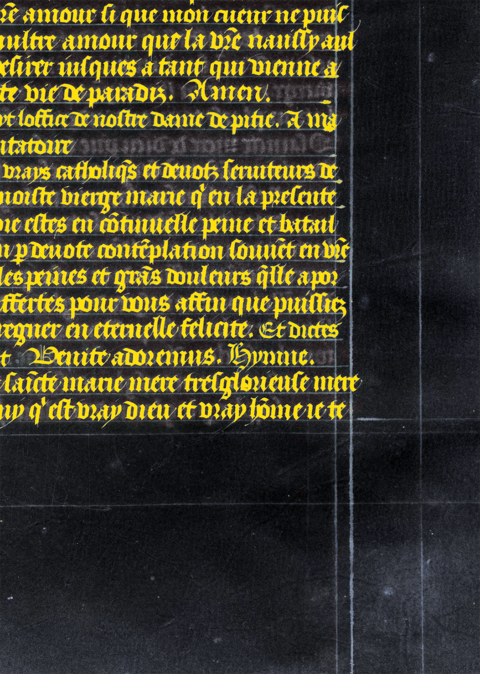 r̄e amour si que mon cueur ne puis
aultre amour que la vr̄e naussy aul
esirer iusques a tant qui vienne a
te vie de paradiz. Amen.
loffice de nostre dame de pitie. A ma
itatoire
vrays catholiq̄s et deuotz seruiteurs de
noiste vierge marie q' en la presente
vie estes en cōtinuelle peine et batail
n p deuote contēplation souuēt en vr̄e
les peines et grās douleurs q̄lle a por
uffertes pour vous affin que puissiez
regner en eternelle felicite. Et dictes
t. Uenite adoremus. Hymne.
saīcte marie mere tresglorieuse mere
uy q' est vray dieu et vray hōme ie te